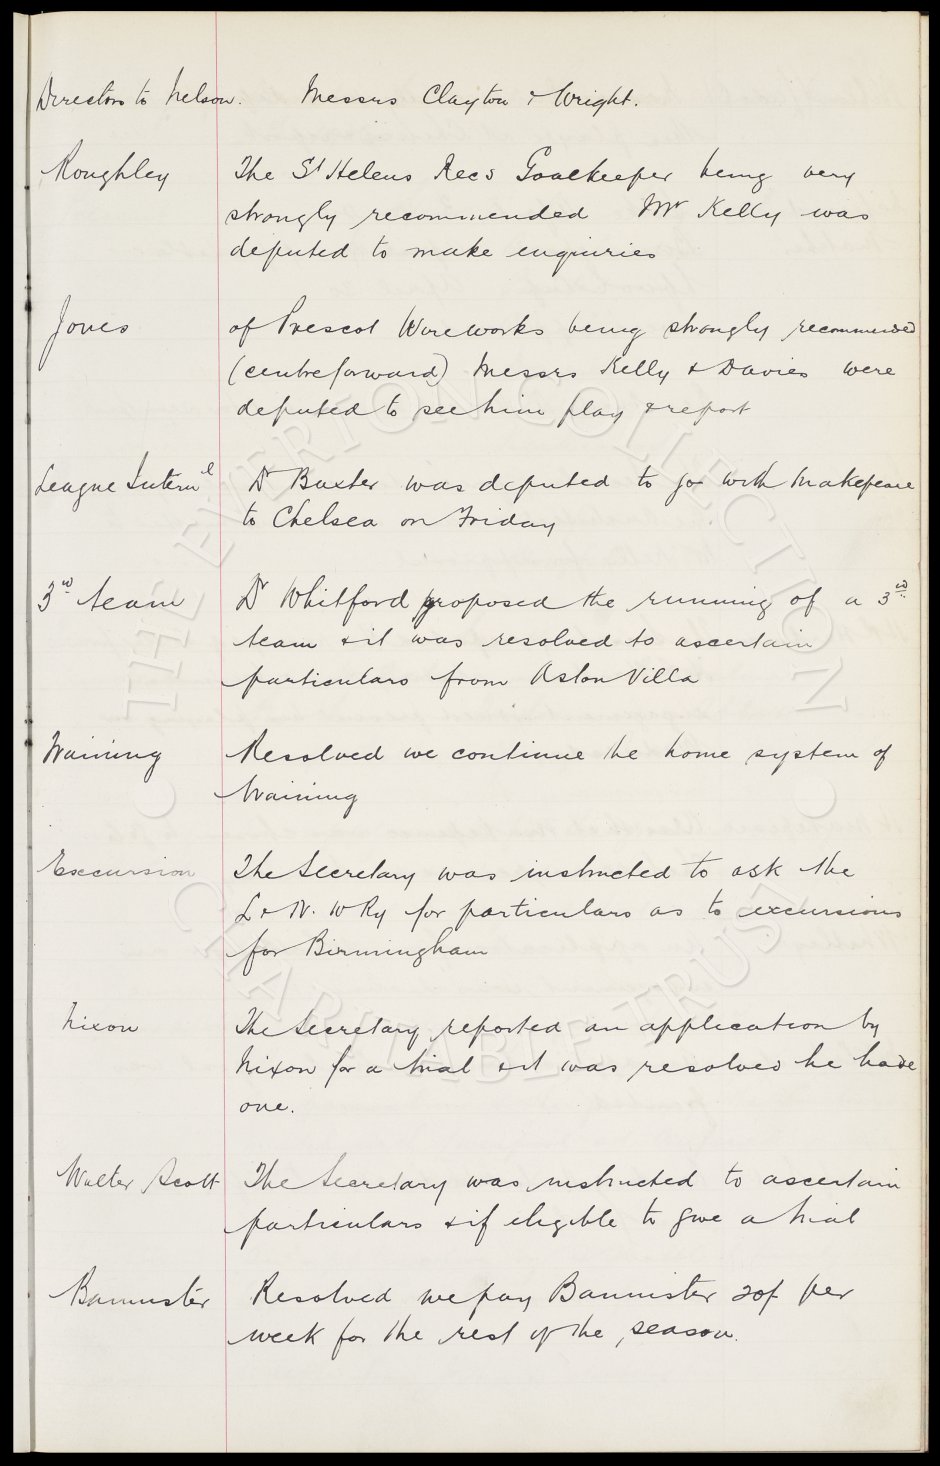 Directors to Nelson. Messrs Clayton & Wright.
Roughley The St Helens Recs Goalkeeper being very
strongly recommended Mr Kelly was
deputed to make enquiries
Jones of Prescot Wireworks being strongly recommended
(centreforward) Messrs Kelly & Davies were
deputed to see him play & report
League Intern'l Dr Baxter was deputed to go with Makepeace
to Chelsea on Friday
3rd team Dr Whitford proposed the running of a 3rd
team & it was resolved to ascertain
particulars from Aston Villa
Training Resolved we continue the home system of
training
Excursion The Secretary was instructed to ask the
L & N. W Ry for particulars as to excursions
for Birmingham
Nixon The Secretary reported an application by
Nixon for a trial & it was resolved he have
one.
Walter Scott The Secretary was instructed to ascertain
particulars & if eligible to give a trial
Bannister Resolved we pay Bannister 20/ per
week for the rest of the season.
© THE EVERTON COLLECTION
CHARITABLE TRUST